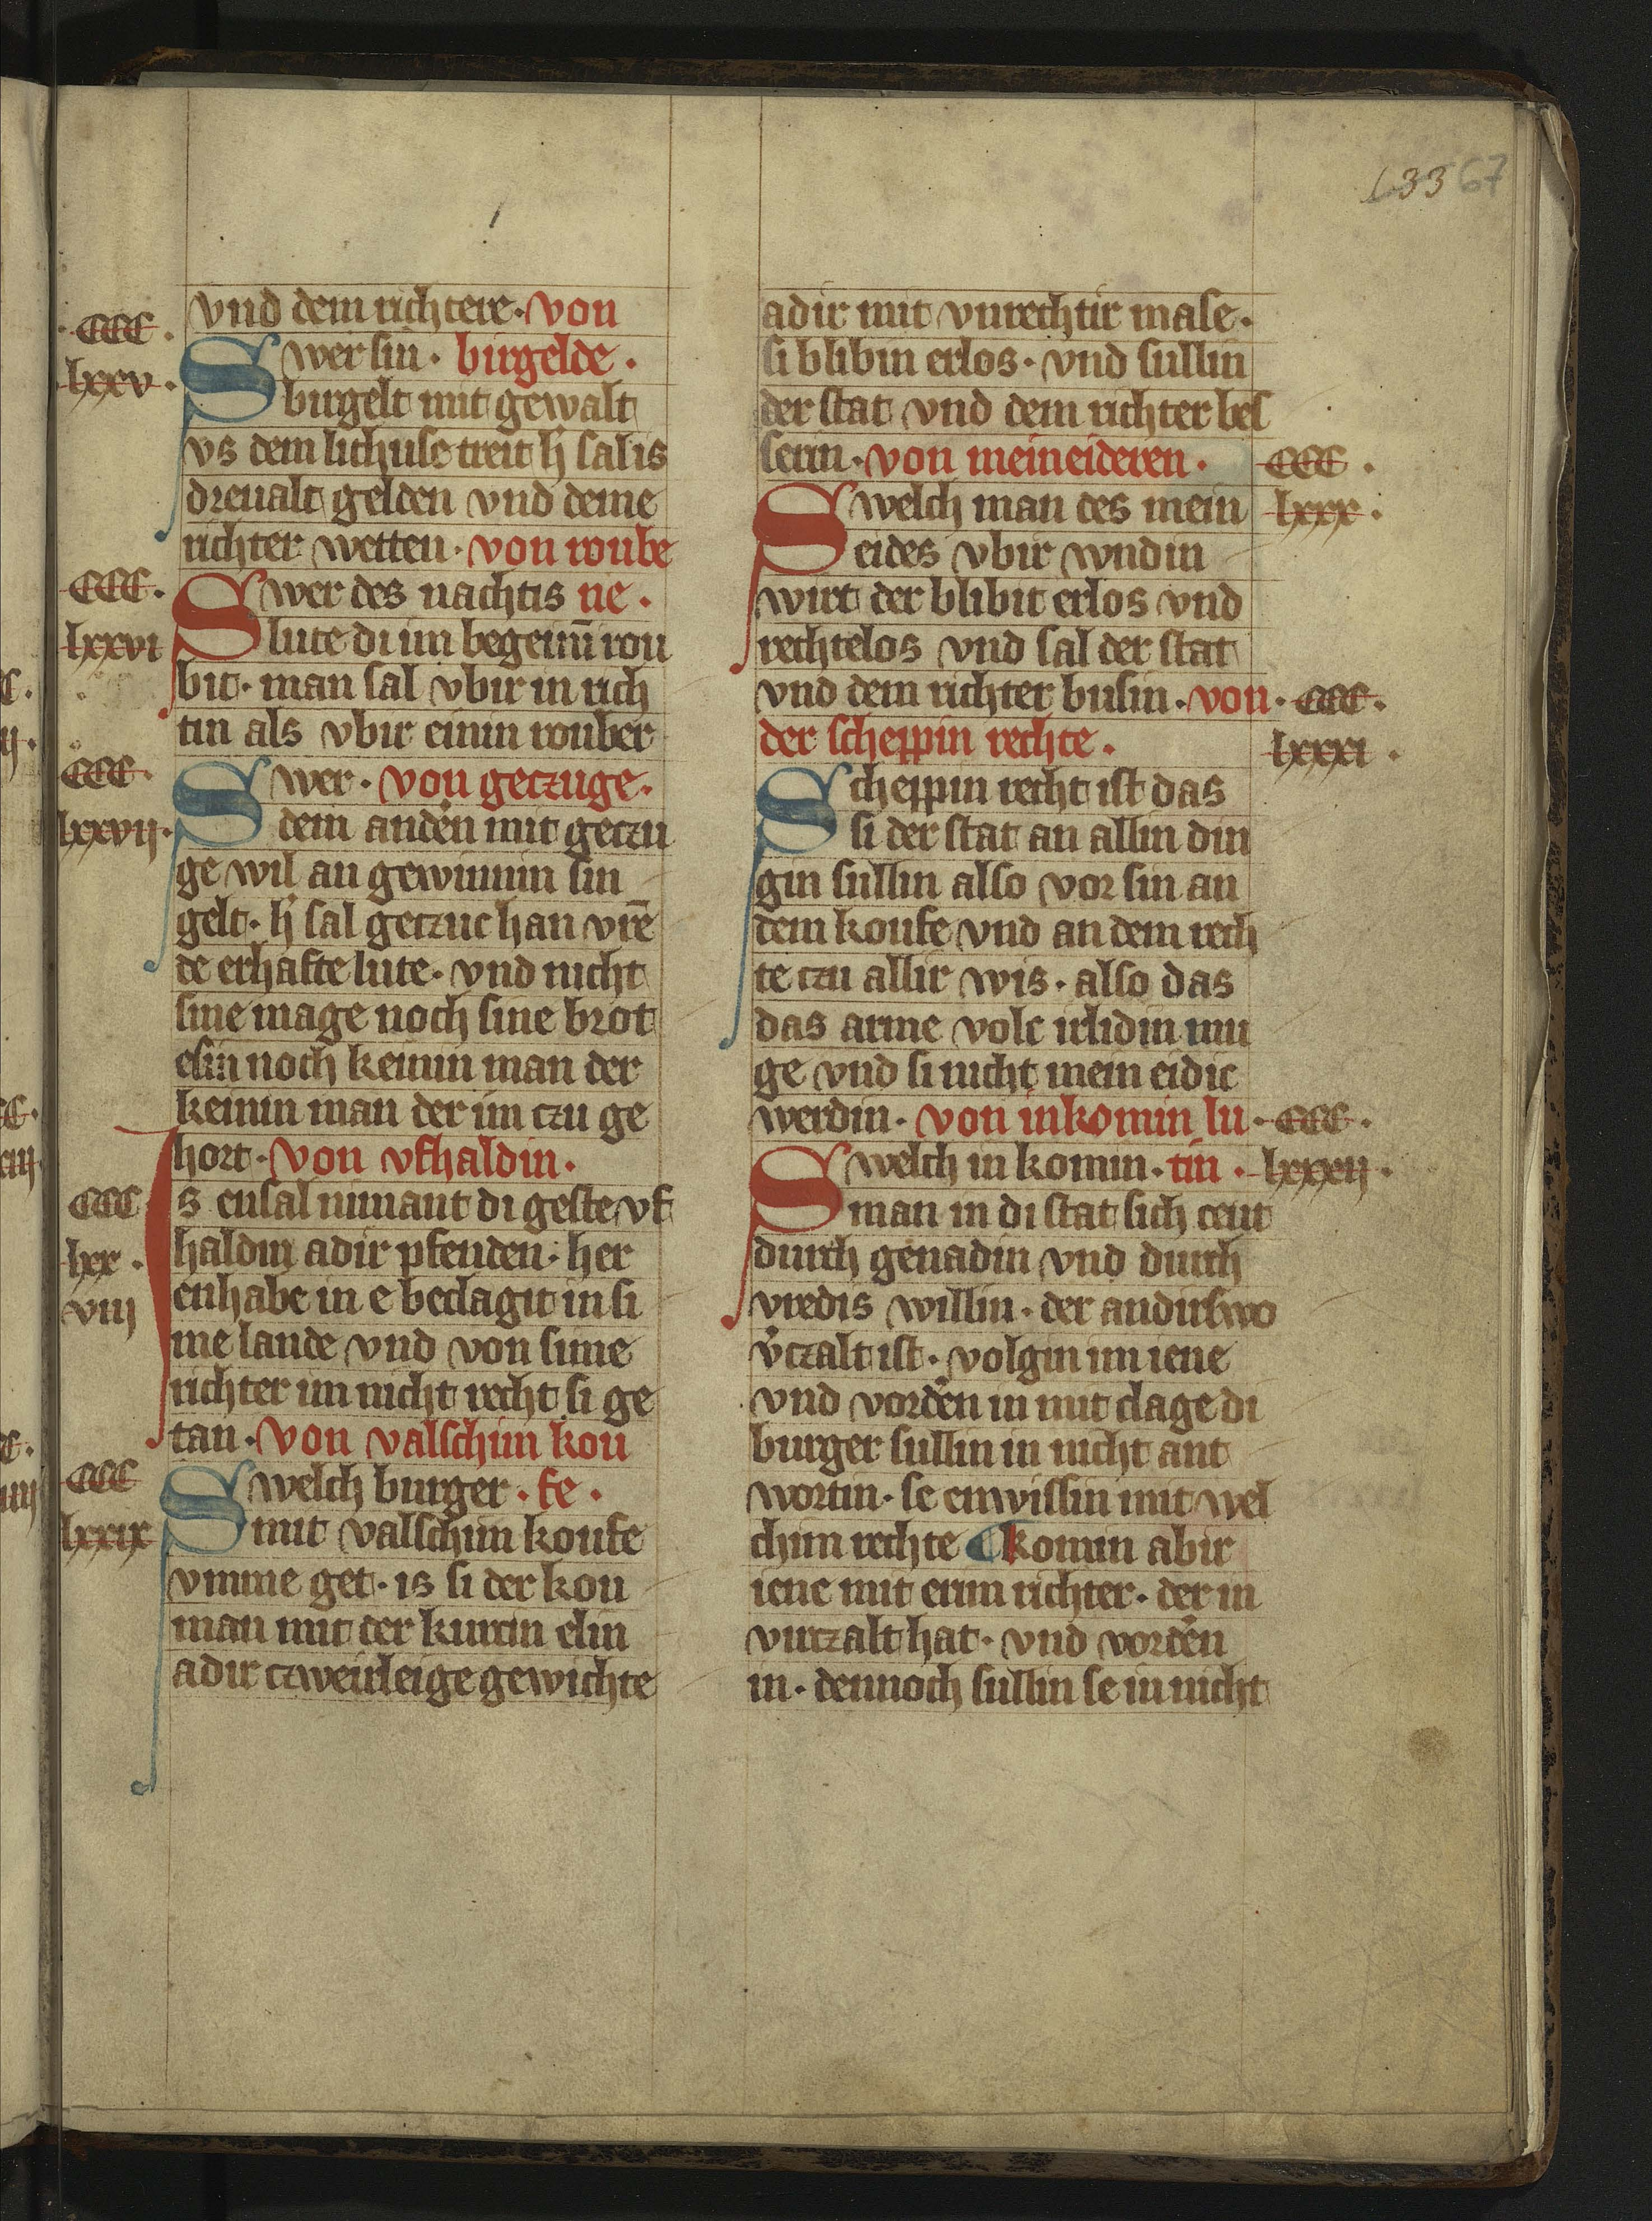 133 67
·CCC·
lxxv·
vnd dem richtere· von
Swer sin· birgelde·
birgelt mit gewalt
vs dem lichuse treit h' sal is
dreualt gelden vnd deme
richter wetten· von roube
CCC·
lxxvi
Swer des nachtis ne·
lute di im begeinn̄ rou
bit· man sal vbir in rich
tin als vbir einin rouber
CCC·
lxxvij·
Swer· von geczuge·
dem anden̄ mit geczu
ge wil an gewinnin sin
gelt· h' sal geczuc han vrē
de erhafte lute· vnd nicht
sine mage noch sine brot
esin noch keinin man der
keinin man der im czu ge
hort· von vfhaldin·
CCC
lxx·
viij
Is ensal nimant di geste vf
haldin adir pfenden· her
enhabe in e beclagit in si
me lande vnd von sime
richter im nicht recht si ge
tan· von valschim kou
CCC
lxxix
Swelch burger· fe·
mit valschim koufe
vmme get· is si der kou
man mit der kurtin elin
adir czweirleige gewichte
adir mit vnrechtir mase·
si blibin erlos· vnd sullin
der stat vnd dem richter bes
serin· von meineideren·
CCC·
lxxx·
Swelch man des mein
eides vbir wndin
wirt der blibit erlos vnd
rechtelos vnd sal der stat
vnd dem richter busin· von
·CCC·
lxxxi·
der scheppin rechte·
Scheppin recht ist das
si der stat an allin din
gin sullin also vor sin an
dem koufe vnd an dem rech
te czu allir wis· also das
das arme volc irlidin mu
ge vnd si nicht mein eidic
werdin· von inkomin lu
·CCC·
lxxxij·
Swelch in komin· tin·
man in di stat sich ceut
durch genadin vnd durch
vredis willin· der andirswo
v'czalt ist· volgin im iene
vnd vorden̄ in mit clage di
burger sullin in nicht ant
wortin· se enwissin mit wel
chim rechte ¶ komin abir
iene mit erim richter· der in
virczalt hat· vnd vorden̄
in· dennoch sullin se in nicht